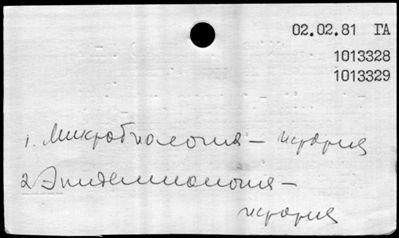 02.02.81 ГА
1013328
1013329
1. Микробиология —
2 Эпидемиология —